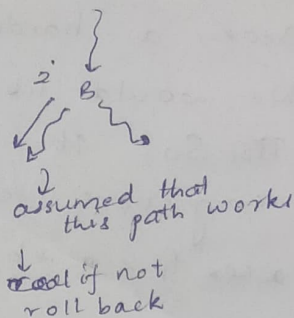 2
B
assumed that
this path works
if not
roll back